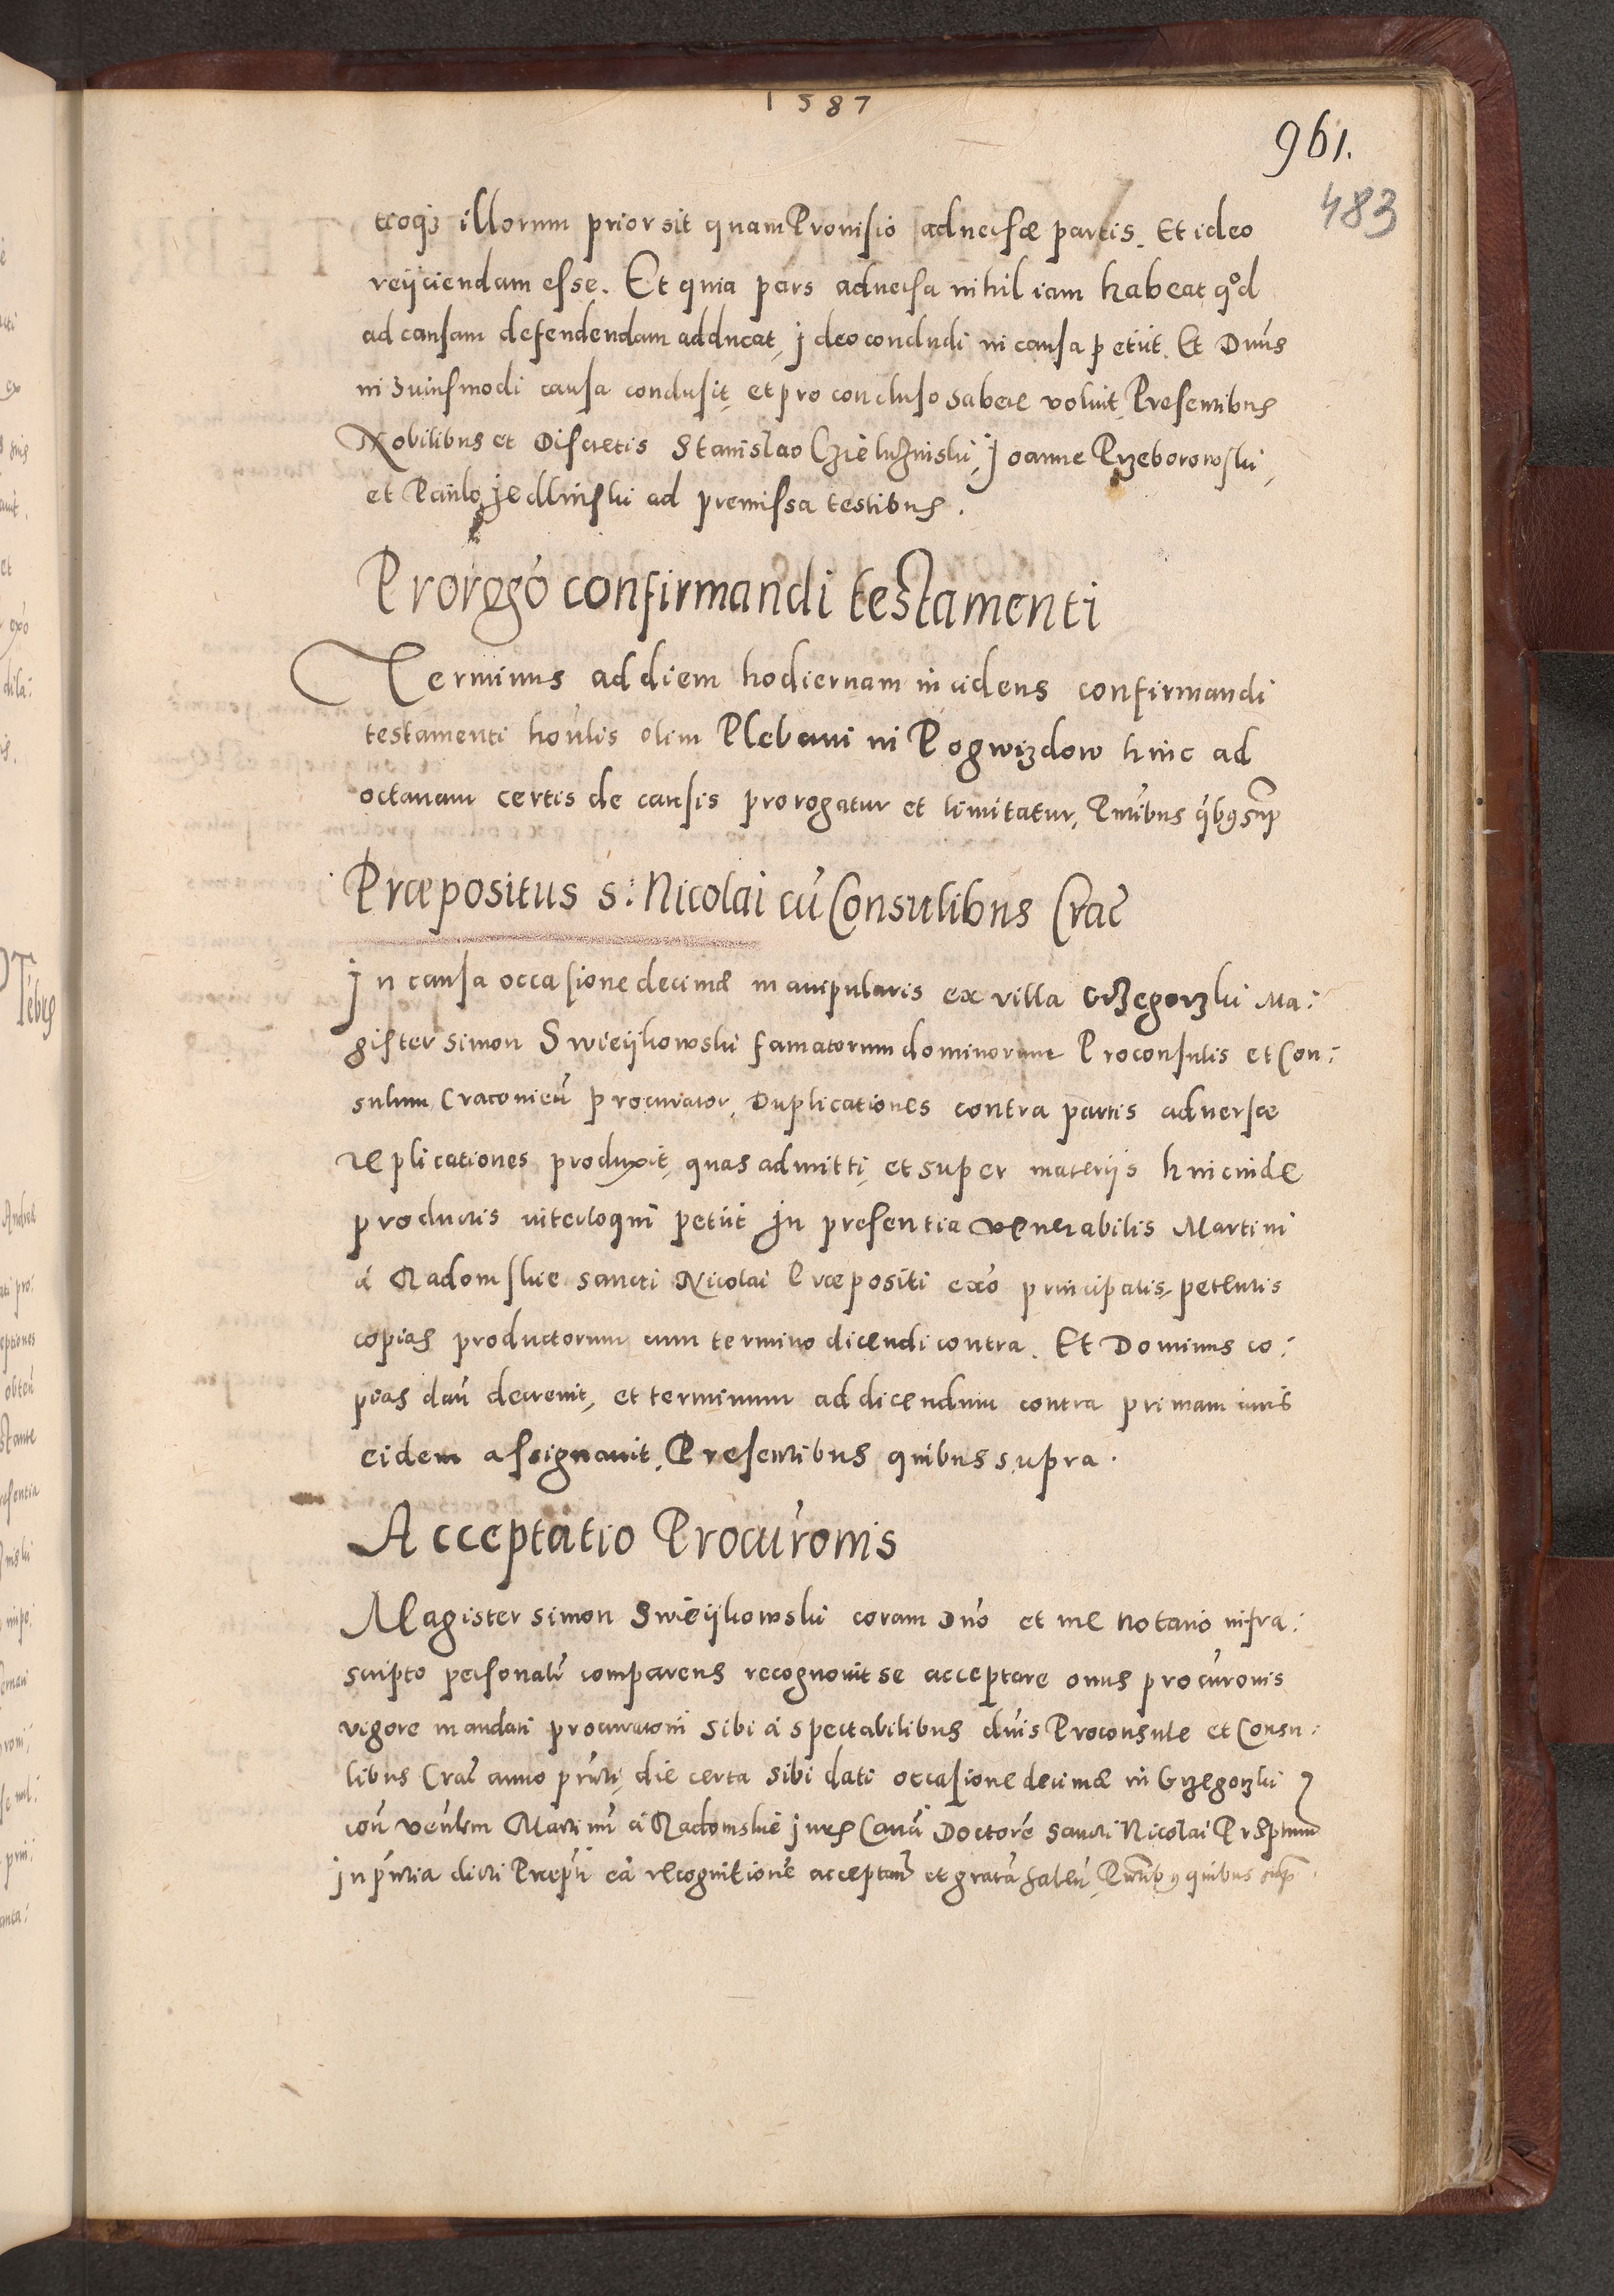 1587
961.
483
illorum prior sit quam Provisio adversæ partis. Et ideo
reijciendam esse. Et quia pars adversa nihil iam habeat qod
ad causam defendendam adducat, ideo concludi in causa petiit. Et Dnus
in huiusmodi causa conclusit, et pro concluso habere voluit, Presentibus
Nobilibus et Discretis Stanislao Joanne Przeborowski,
et Paulo Jedlinski ad premissa testibus.
Prorogo confirmandi testamenti
Terminus ad diem hodiernam incidens confirmandi
testamenti honlis olim Plebani in Pogwizdow hinc ad
octavam certis de causis prorogatur et limitatur, Pntibus qbus sup
Præpositus s: Nicolai cu Consulibus Crac
In causa occasione decimæ manipularis ex villa Grzegorzki Ma:
gister Simon Swieijkowski famatorum dominorum Proconsulis et Con:
sulum Cracovien procurator, Duplicationes contra partis adversæ
replicationes produxit, quas admitti, et super materijs hincinde
productis interloqui petiit In presentia venerabilis Martini
á Radomskie sancti Nicolai Præpositi exo principalis, petentis
copias productorum cum termino dicendi contra. Et Dominus co:
pias dari decrevit, et terminum ad dicendum contra primam iuris
eidem assignavit, Presentibus quibus supra.
Acceptatio Procuronis
Magister Simon Swieijkowski coram Dno et me notario infra:
scripto personalr comparens recognovit se acceptare onus procuronis
vigore mandati procuratorii sibi á spectabilibus dnis Proconsule et Consu:
libus Crac anno pnti, die certa sibi dati occasione decimæ in Grzegorzki
con venlem Martinu á Radomskie Canu Doctore Sancti Nicolai Præptum
In pntia dicti Præpti ea recognitione acceptam et grata haben, Pntibus quibus sup